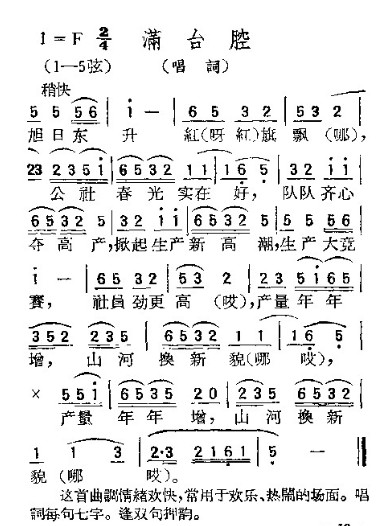 1=F 2/4 滿台腔
(1—5弦) (唱詞)
稍快
5 5 56 | i — | 65 32 | 532 |
旭日东 升 紅(呀 紅)旗 飘(哪),
23 235i | 6532 11 | 165 | 32 ii |
公社 春光实在 好, 队队齐心
6532 5 | 32 ii | 6532 5 | 5 5 56 |
夺高产,掀起生产新高 潮,生产大竞
i — | 6532 | 53 2 | 23 5i65 |
賽, 社員劲更高 (哎),产量年年
352 235 | 6532 1 1 | 16 5 |
增, 山河换新 貌(哪 哎),
× 55i | 6535 20 | 235 6535 |
产量 年年 增, 山河换新
1 1 3 | 2·3 2161 | 5 — |
貌 (哪 哎)。
这首曲調情緒欢快,常用于欢乐、热鬧的场面。唱
詞每句七字。逢双句押韵。